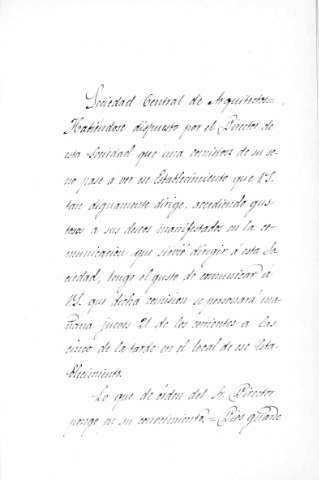 Sociedad Central de Arquitectos=
Habiéndose dispuesto por el Director de
esta Sociedad que una comision de su se-
no pase a ver ese Establecimiento que V.S.
tan dignamente dirige, accediendo gus-
tosos a sus deseos manifestados en la co-
municacion que sirvió dirigir á esta So-
ciedad, tengo el gusto de comunicar á
V.S. que dicha comision se personará ma-
ñana jueves 21 de los corrientes a las
cinco de la tarde en el local de ese Esta-
blecimiento.
Lo que de órden del Sr. Director
pongo en su conocimiento.= Dios guarde